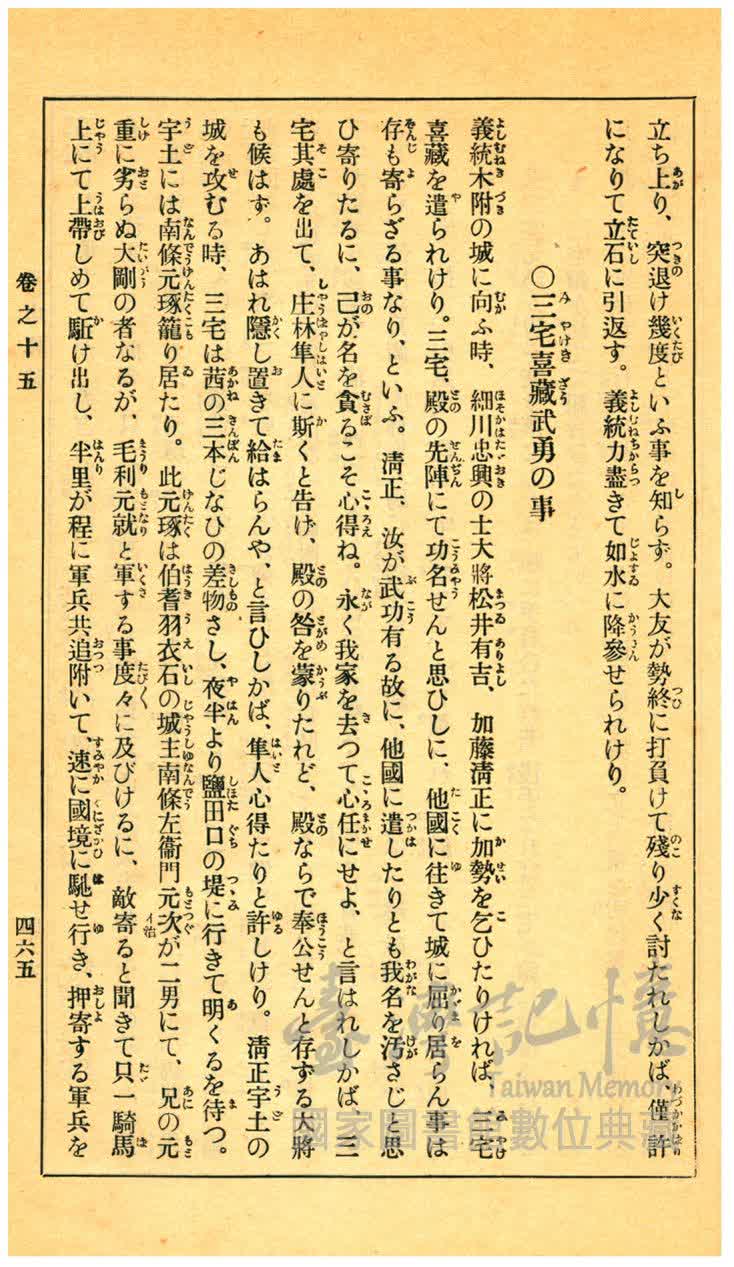 立ち上り、突退け幾度といふ事を知らず。大友が勢終に打負けて殘り少く討たれしかば、僅許
になりて立石に引返す。義統力盡きて如水に降參せられけり。
〇三宅喜藏武勇の事
義統木附の城に向ふ時、細川忠興の士大將松井有吉、加藤淸正に加勢を乞ひたりければ、三宅
喜藏を遣られけり。三宅、殿の先陣にて功名せんと思ひしに、他國に往きて城に屈り居らん事は
存も寄らざる事なり、といふ。淸正、汝が武功有る故に、他國に遣したりとも我名を汚さじと思
ひ寄りたるに、己が名を貪るこそ心得ね。永く我家を去つて心任にせよ、と言はれしかば、三
宅其處を出て、庄林隼人に斯くと吿げ、殿の咎を蒙りたれど、殿ならで奉公せんと存ずる大將
も候はず。あはれ隱し置きて給はらんや、と言ひしかば、隼人心得たりと許しけり。淸正宇土の
城を攻むる時、三宅は茜の三本じなひの差物さし、夜半より鹽田口の堤に行きて明くるを待つ。
宇土には南條元琢籠り居たり。此元琢は伯耆羽衣石の城主南條左衞門元次が二男にて、兄の元
イ治
重に劣らぬ大剛の者なるが、毛利元就と軍する事度々に及びけるに、敵寄ると聞きて只一騎馬
上にて上帶しめて駈け出し、半里が程に軍兵共追附いて、速に國境に馳せ行き、押寄する軍兵を
卷之十五
四六五
臺灣記憶
Taiwan Memory
國家圖書館數位典藏